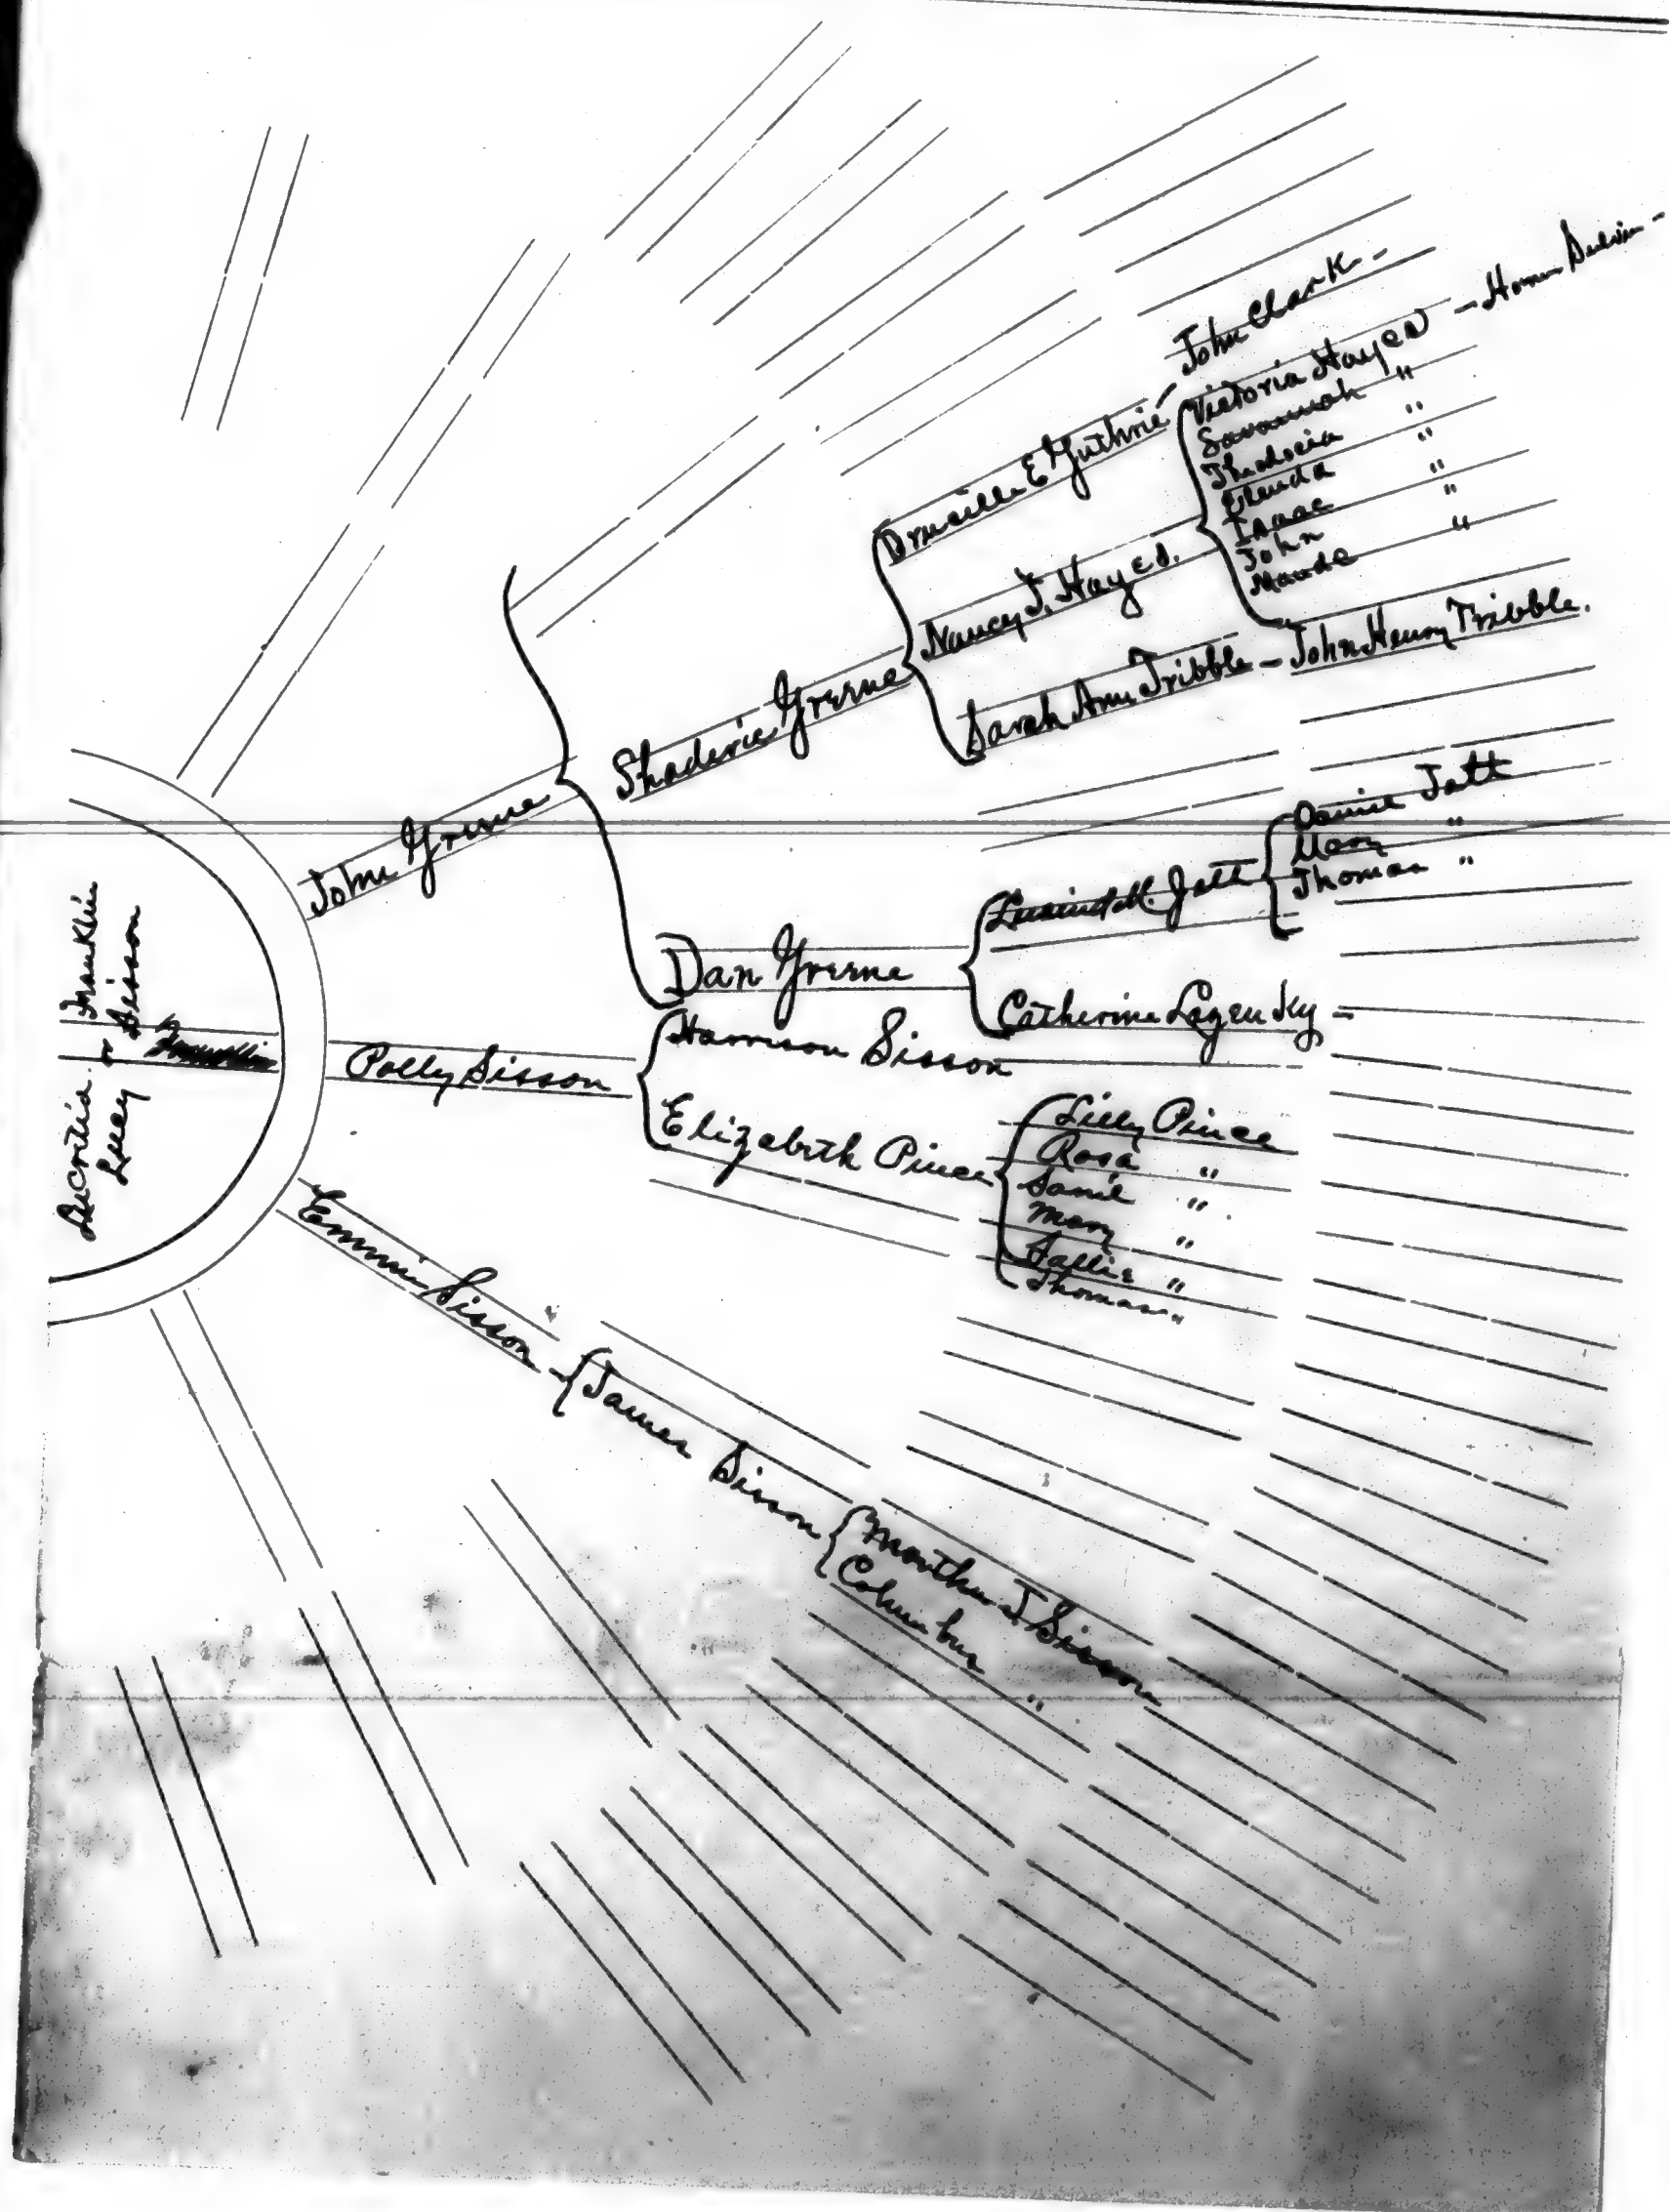 Franklin
Sisson
Lucritia or
Lucy
John Greene
Shaderic Greene
Drucilla E Guthrie -
John Clark -
Nancy J. Hayes.
Victoria Hayes -
Savannah "
Theodocia "
"
Isaac "
John "
Maude "
Sarah Ann Tribble - John Henry Tribble.
Dan Greene
Jatt
Daniel Jatt
Mary "
Thomas "
Catherine Lazenky -
Polly Sisson
Harrison Sisson
Elizabeth Pince
Lilly Pince
Rosa "
"
Mary "
Sallie "
Thomas "
Sisson -
James Sisson
Martha J Sisson
Columbus "